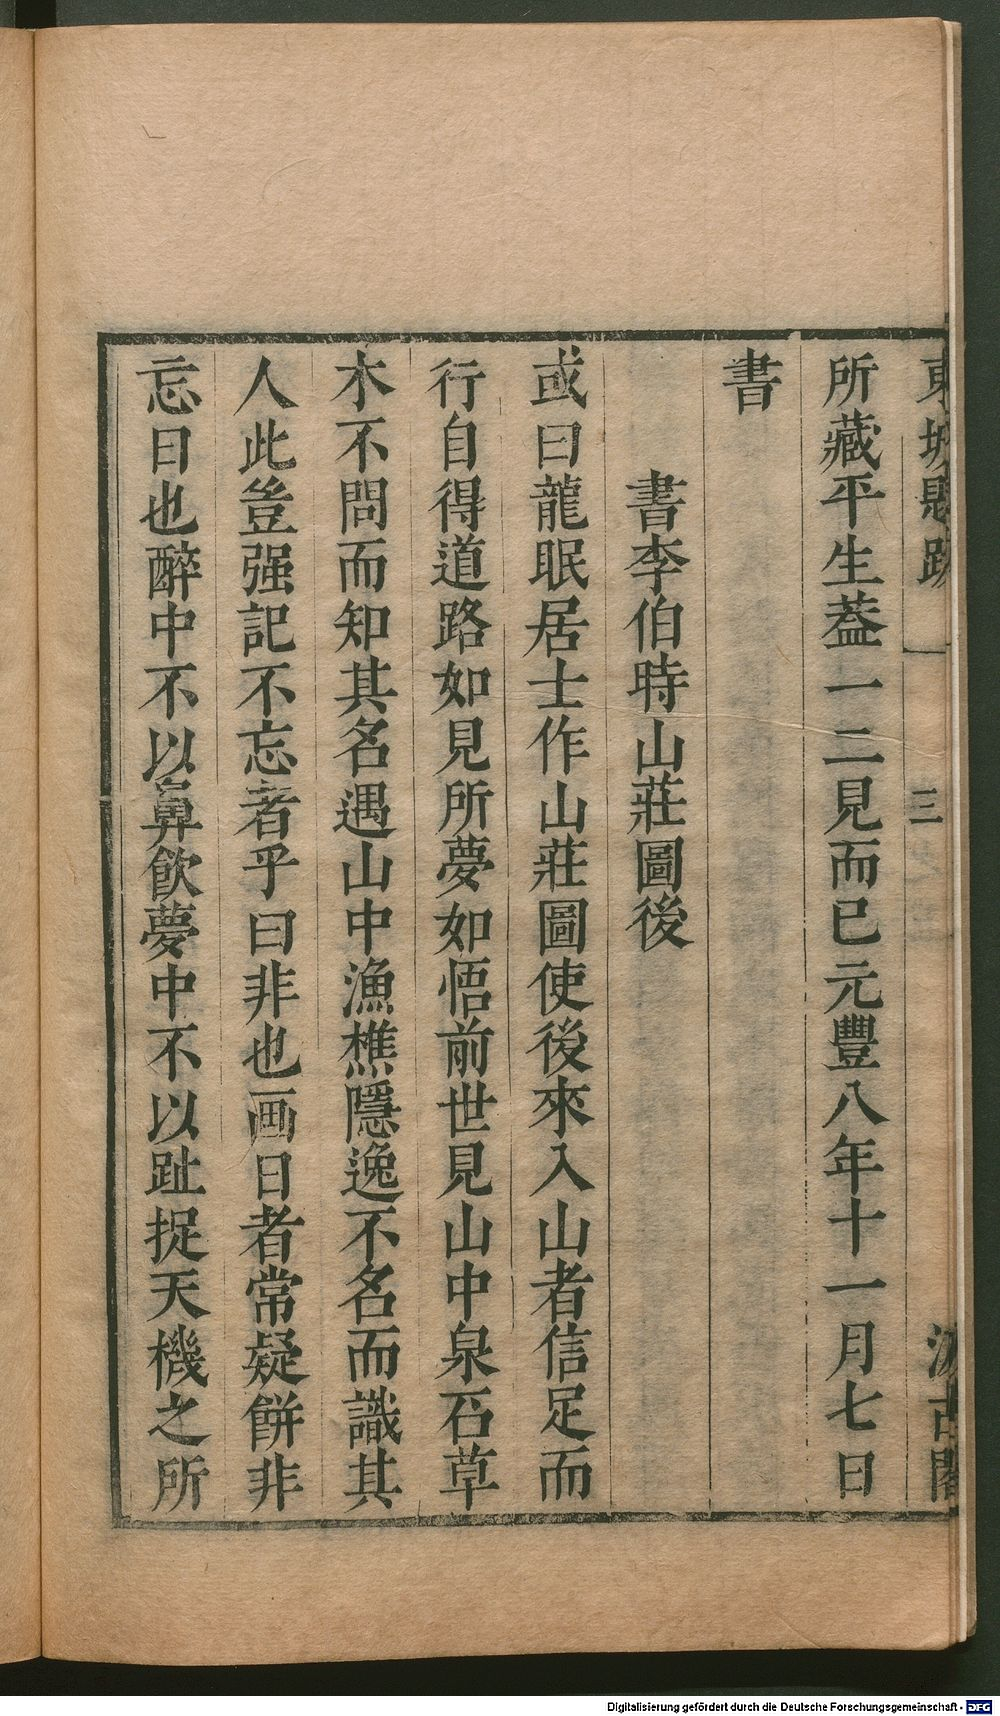 東坡題跋 一 三 汲古閣
所藏平生葢一二見而已元豐八年十一月七日
書
書李伯時山莊圖後
或曰龍眠居士作山莊圖使後來入山者信足而
行自得道路如見所夢如悟前世見山中泉石草
木不問而知其名遇山中漁樵隱逸不名而識其
人此豈强記不忘者乎曰非也画日者常疑餅非
忘日也醉中不以鼻飲夢中不以趾捉天機之所
Digitalisierung gefördert durch die Deutsche Forschungsgemeinschaft - DFG